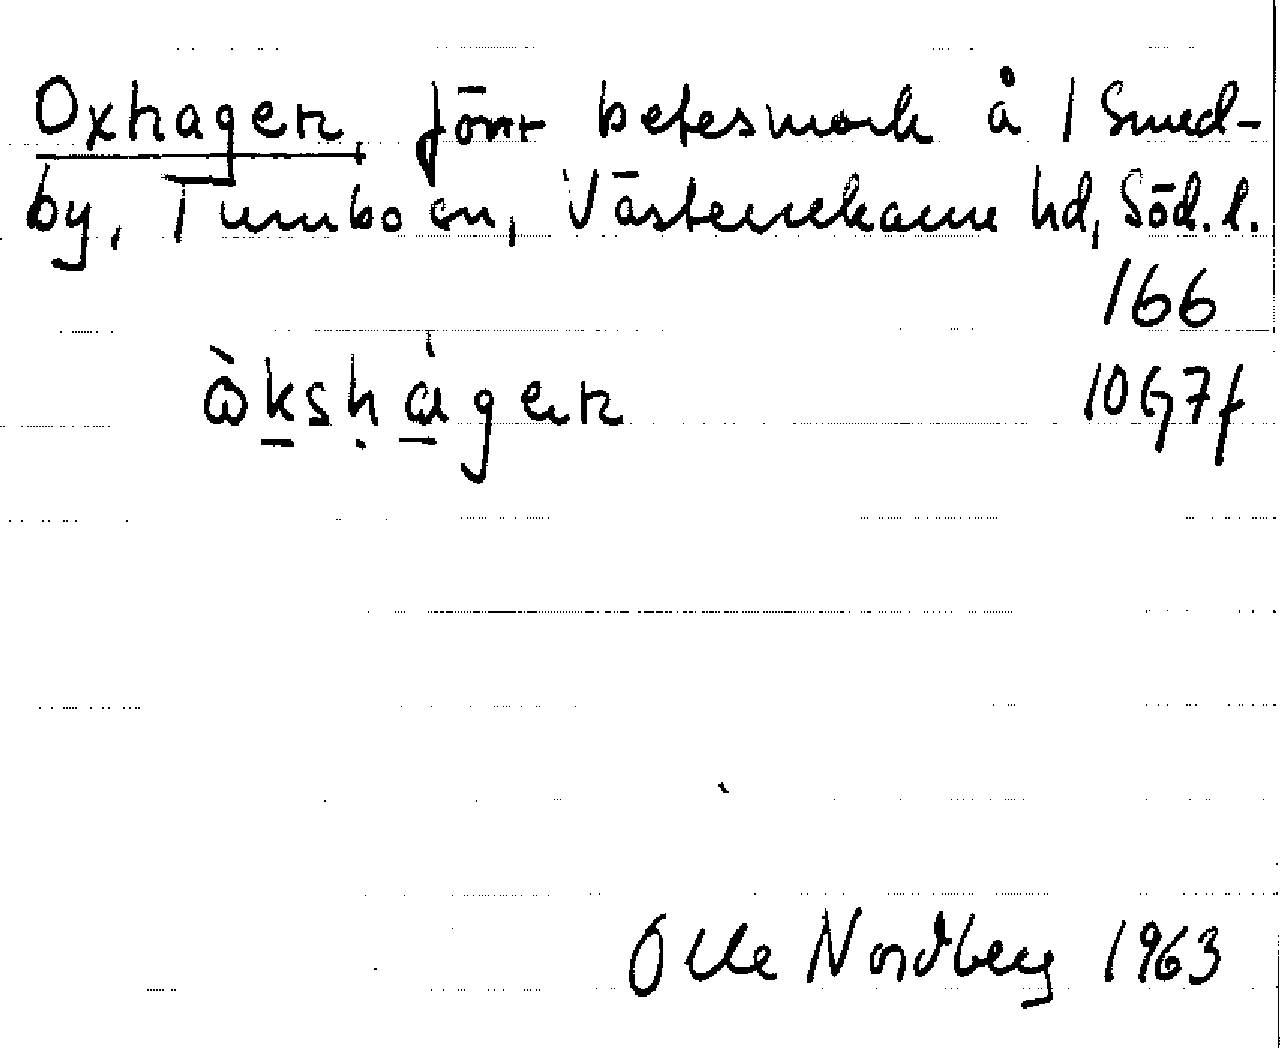 Oxhagen, förr betesmark å 1 Smed-
by, Tumbo sn, Västerrekarne hd, Söd. l.
166
òkshágen 10G7f
Olle Nordberg 1963